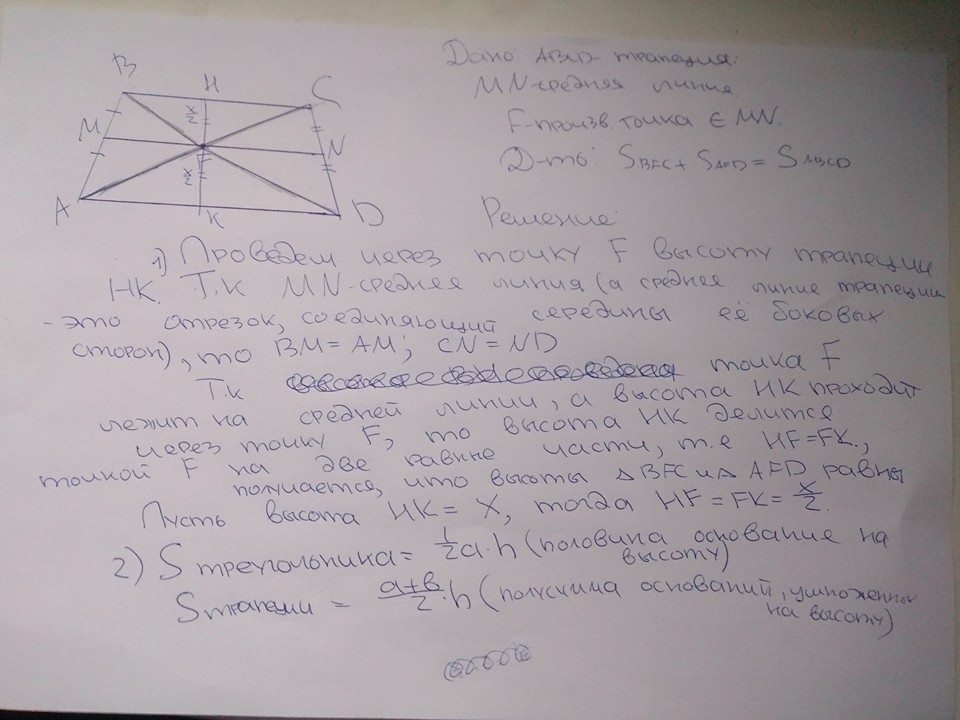 B H C
x/2
M F N
x/2
A K D
Дано ABCD-трапеция.
MN-средняя линия
F-произв. точка ∈ MN.
Д-ть: SBFC + SAFD = SABCD
Решение:
1) Проведем через точку F высоту трапеции
HK. Т.к MN-средняя линия (а средняя линие трапеции
- это отрезок, соединяющий середины её боковых
сторон), то BM = AM; CN = ND
Т.к точка F
лежит на средней линии, а высота HK проходит
через точку F, то высота HK делится
точкой F на две равные части, т.е HF=FK.,
получается, что высоты △BFC и △ AFD равны
Пусть высота HK = X, тогда HF = FK = x/2.
2) S треугольника = 1/2 a·h (половина основание на
высоту)
S трапеции = a+b/2 · h (полусумма оснований, умноженны
на высоту)